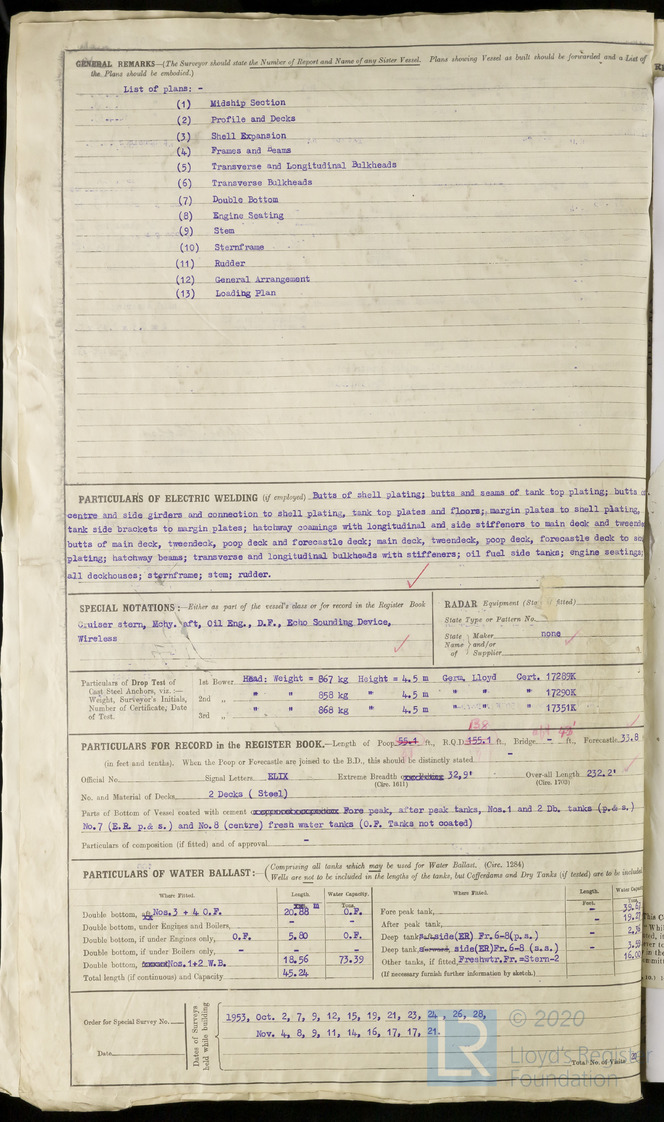 GENERAL REMARKS—(The Surveyor should state the Number of Report and Name of any Sister Vessel. Plans showing Vessel as built should be forwarded and a List of
the Plans should be embodied.)
List of plans: -
(1) Midship Section
(2) Profile and Decks
(3) Shell Expansion
(4) Frames and Beams
(5) Transverse and Longitudinal Bulkheads
(6) Transverse Bulkheads
(7) Double Bottom
(8) Engine Seating
(9) Stem
(10) Sternframe
(11) Rudder
(12) General Arrangement
(13) Loading Plan
PARTICULARS OF ELECTRIC WELDING (if employed) Butts of shell plating; butts and seams of tank top plating; butts
centre and side girders and connection to shell plating, tank top plates and floors; margin plates to shell plating,
tank side brackets to margin plates; hatchway coamings with longitudinal and side stiffeners to main deck and tweende
butts of main deck, tweendeck, poop deck and forecastle deck; main deck, tweendeck, poop deck, forecastle deck to
plating; hatchway beams; transverse and longitudinal bulkheads with stiffeners; oil fuel side tanks; engine seatings;
all deckhouses; sternframe; stem; rudder.
SPECIAL NOTATIONS:—Either as part of the vessel's class or for record in the Register Book
Cruiser stern, Mchy. aft, Oil Eng., D.F., Echo Sounding Device,
Wireless
RADAR Equipment (Sta fitted)
State Type or Pattern No.
State Name of Maker and/or Supplier none
Particulars of Drop Test of
Cast Steel Anchors, viz.:—
Weight, Surveyor's Initials,
Number of Certificate, Date
of Test.
1st Bower Head: Weight = 867 kg Height = 4.5 m Germ. Lloyd Cert. 17289K
2nd „ " " 858 kg " 4.5 m " " " 17290K
3rd „ " " 868 kg " 4.5 m " " " 17351K
138 43'
PARTICULARS FOR RECORD in the REGISTER BOOK.—Length of Poop 55.1 ft., R.Q.D. 155.1 ft., Bridge - ft., Forecastle 33.8
(in feet and tenths). When the Poop or Forecastle are joined to the B.D., this should be distinctly stated -
Official No. Signal Letters ELIX Extreme Breadth 32,9' Over-all Length 232.2'
(Circ. 1611) (Circ. 1703)
No. and Material of Decks 2 Decks ( Steel)
Parts of Bottom of Vessel coated with cement Fore peak, after peak tanks, Nos.1 and 2 Db. tanks (p.& s.)
No.7 (E.R. p.& s.) and No.8 (centre) fresh water tanks (O.F. Tanks not coated)
Particulars of composition (if fitted) and of approval -
PARTICULARS OF WATER BALLAST:—(Comprising all tanks which may be used for Water Ballast. (Circ. 1284)
Wells are not to be included in the lengths of the tanks, but Cofferdams and Dry Tanks (if tested) are to be included
Where Fitted. Length. Water Capacity. Where Fitted. Length. Water Capacity
m Tons. Feet. Tons.
Double bottom, aft Nos.3 + 4 O.F. 20.88 O.F. Fore peak tank, - 39.67
Double bottom, under Engines and Boilers, - - After peak tank, - 19.27
Double bottom, if under Engines only, O.F. 5.80 O.F. Deep tank, aft side(ER) Fr.6-8(p.s.) -
Double bottom, if under Boilers only, - - - Deep tank, side(ER)Fr.6-8 (s.s.) - 3.59
Double bottom, Nos.1+2 W.B. 18.56 73.39 Other tanks, if fitted Freshwtr.Fr.=Stern-2 16.00
Total length (if continuous) and Capacity 45.24 (If necessary furnish further information by sketch.)
Order for Special Survey No.
Date
Dates of Surveys held while building
1953, Oct. 2, 7, 9, 12, 15, 19, 21, 23, 24 , 26, 28,
Nov. 4, 8, 9, 11, 14, 16, 17, 17, 21.
Total No. of Visits 20
LR © 2020
Lloyd's Register
Foundation